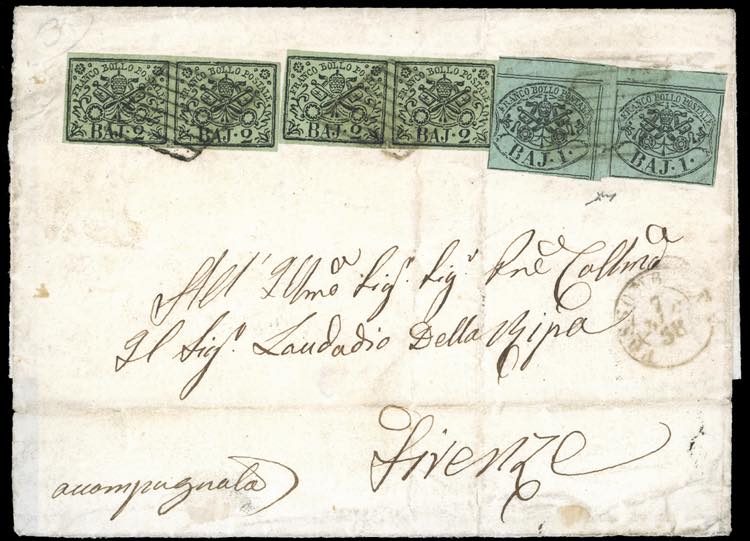 FRANCO BOLLO POSTALE
BAJ. 2
FRANCO BOLLO POSTALE
BAJ. 2
FRANCO BOLLO POSTALE
BAJ. 2
FRANCO BOLLO POSTALE
BAJ. 2
FRANCO BOLLO POSTALE
BAJ. 1.
FRANCO BOLLO POSTALE
BAJ. 1.
All' Illmo Sigr. Sigr. Pne Collmo
Il Sigr. Laudadio Della Ripa
Firenze
accompagnata
7
58